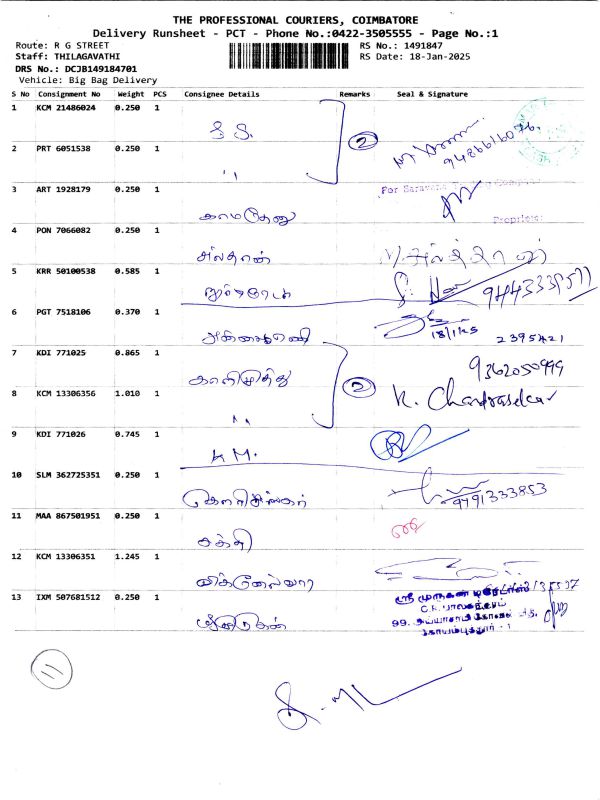 THE PROFESSIONAL COURIERS, COIMBATORE
Delivery Runsheet - PCT - Phone No.:0422-3505555 - Page No.:1
Route: R G STREET
RS No.: 1491847
Staff: THILAGAVATHI
RS Date: 18-Jan-2025
DRS No.: DCJB149184701
Vehicle: Big Bag Delivery
S No Consignment No Weight PCS Consignee Details Remarks Seal & Signature
1 KCM 21486024 0.250 1
S S. 2
2 PRT 6051538 0.250 1
"
3 ART 1928179 0.250 1 For Saravana
காமதேனு Proprietor
4 PON 7066082 0.250 1
சுல்தான்
5 KRR 50100538 0.585 1
6 PGT 7518106 0.370 1
18/1/25 2395421
7 KDI 771025 0.865 1
காளிமுத்து 9362050999
8 KCM 13306356 1.010 1 2 K. Chandrasekar
"
9 KDI 771026 0.745 1
K M.
10 SLM 362725351 0.250 1
9791333853
11 MAA 867501951 0.250 1
சக்தி
12 KCM 13306351 1.245 1
13 IXM 507681512 0.250 1 ஸ்ரீ முருகன்
முருகன்
கோயம்புத்தூர் - 1
11